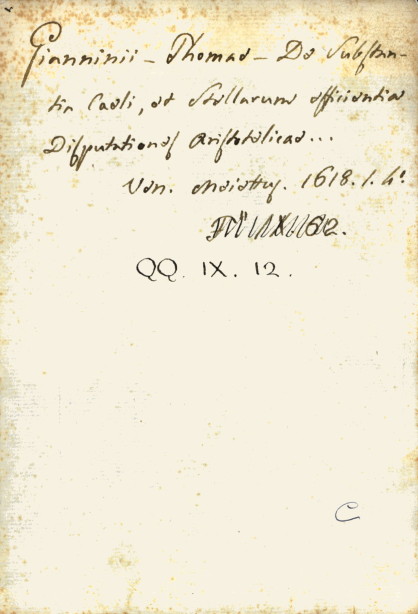 Gianninii - Thomae - De Substan-
tia Caeli, et Stellarum efficientia
Disputationes Aristotelicae...
Ven. Meiettus. 1618. 1. 4°.
QQ. IX. 12.
C